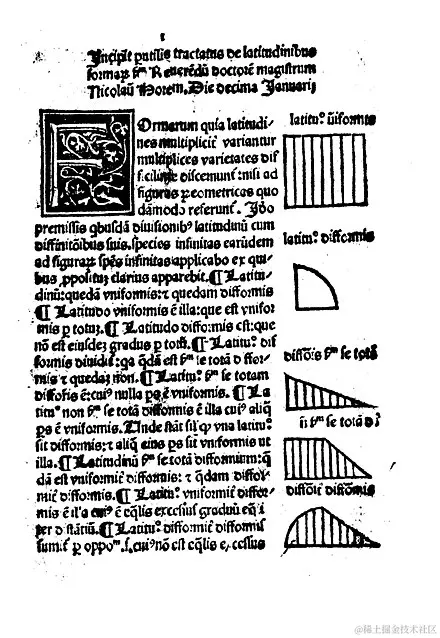 1
Incipit putilis tractatus de latitudinibus
formarū ẜm Reuerēdū doctorē magistrum
Nicolaū Horem. Die decima Januarij
Formarum quia latitudi-
nes multipliciter variantur
multiplices varietates dif
ficiliter discernunt: nisi ad
figuras geometricas quo
dāmodo referunt. Ideo
premissis qbusdā diuisionibus latitudinū cum
diffinitōibus suis. species infinitas earūdem
ad figuras spēs infinitas applicabo ex qui
bus ppositū clarius apparebit. ¶ Latitu-
dinū: quedā vniformis: ⁊ quedam difformis
¶ Latitudo vniformis ē illa: que est vnifor
mis p totū. ¶ Latitudo difformis est: que
nō est eiusdē gradus p totū. ¶ Latitu. dif
formis diuidit: qa qdā est ẜm se totā difform-
mis ⁊ quedā non. ¶ Latitu. ẜm se totam
difformis ē: cuius nulla ps ē vniformis. ¶ La
titu. non ẜm se totā difformis ē illa cuius aliq
ps ē vniformis. Unde stāt sil' q una latitu.
sit difformis: ⁊ aliq eius ps sit vniformis ut
illa. ¶ Latitudinū ẜm se totā difformium: q
dā est vniformiter difformis: ⁊ qdam diffor
miter difformis. ¶ Latitu. vniformiter differ-
mis ē illa cuius ē eqlis excessus graduū eqli
ter distātiū. ¶ Latitu. difformiter difformis
sumit p oppo. s. cuius nō est eqlis excessus
latitu. ūiformis
latitu. difformis
difformis ẜm se totā
nō ẜm se totā dif
difformiter difformis
@稀土掘金技术社区